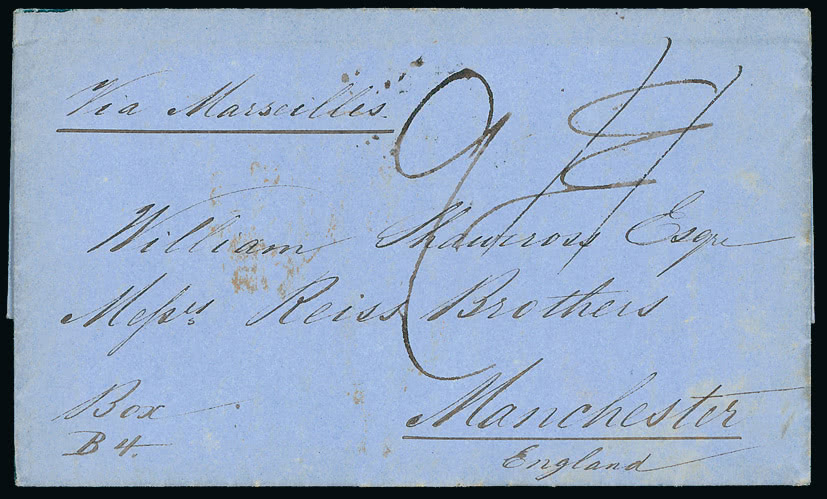 Via Marseilles
William Shawcross Esqre
Messrs. Reiss Brothers
Manchester
England
Box
B 4.